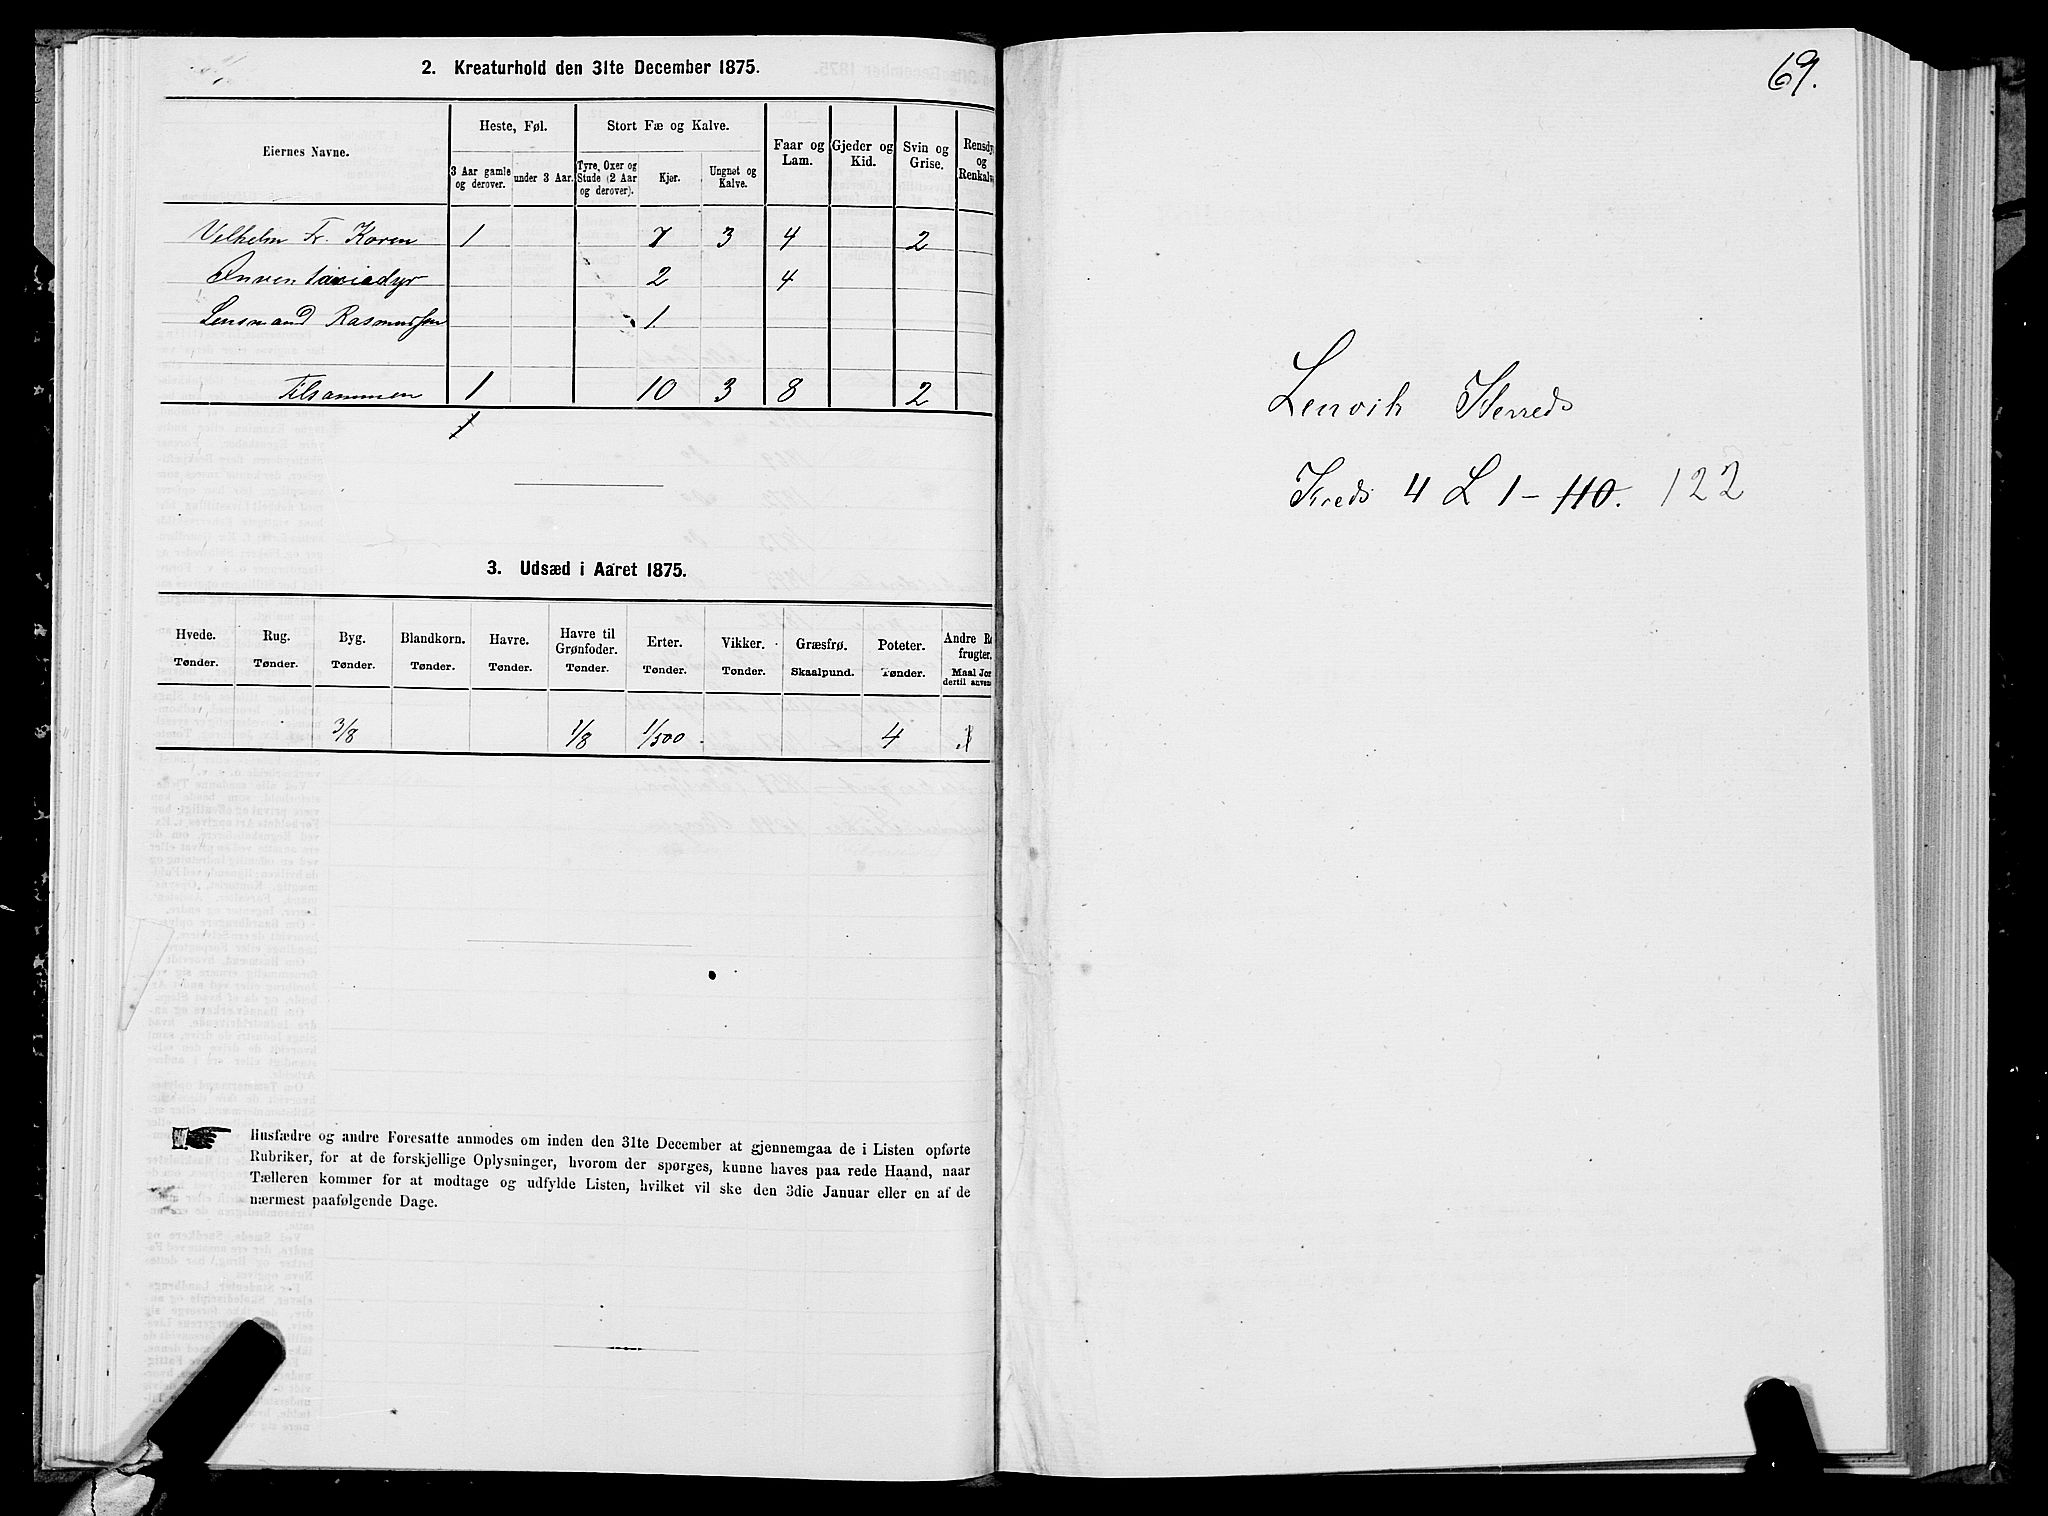 2. Kreaturhold den 31te December 1875.
Eiernes Navne.
Heste, Føl.
Stort Fæ og Kalve.
Faar og Lam.
Gjeder og Kid.
Svin og Grise.
Rensdy og Renkalv
3 Aar gamle og derover.
under 3 Aar.
Tyre, Oxer og Stude (2 Aar og derover).
Kjør.
Ungnøt og Kalve.
Velhelm Fr. Koren 1 7 3 4 2
Inventariedyr 2 4
Lensmand Rasmussen 1
Tilsammen 1 10 3 8 2
1
3. Udsæd i Aaret 1875.
Hvede. Tønder.
Rug. Tønder.
Byg. Tønder.
Blandkorn. Tønder.
Havre. Tønder.
Havre til Grønfoder. Tønder.
Erter. Tønder.
Vikker. Tønder.
Græsfrø. Skaalpund.
Poteter. Tønder.
Andre R frugter. Maal Jor dertil anven
3/8 1/8 1/500 4
Husfædre og andre Foresatte anmodes om inden den 31te December at gjennemgaa de i Listen opførte
Rubriker, for at de forskjellige Oplysninger, hvorom der spørges, kunne haves paa rede Haand, naar
Tælleren kommer for at modtage og udfylde Listen, hvilket vil ske den 3die Januar eller en af de
nærmest paafølgende Dage.
69.
Lenvik Herreds
Kreds 4 L 1 – 110. 122